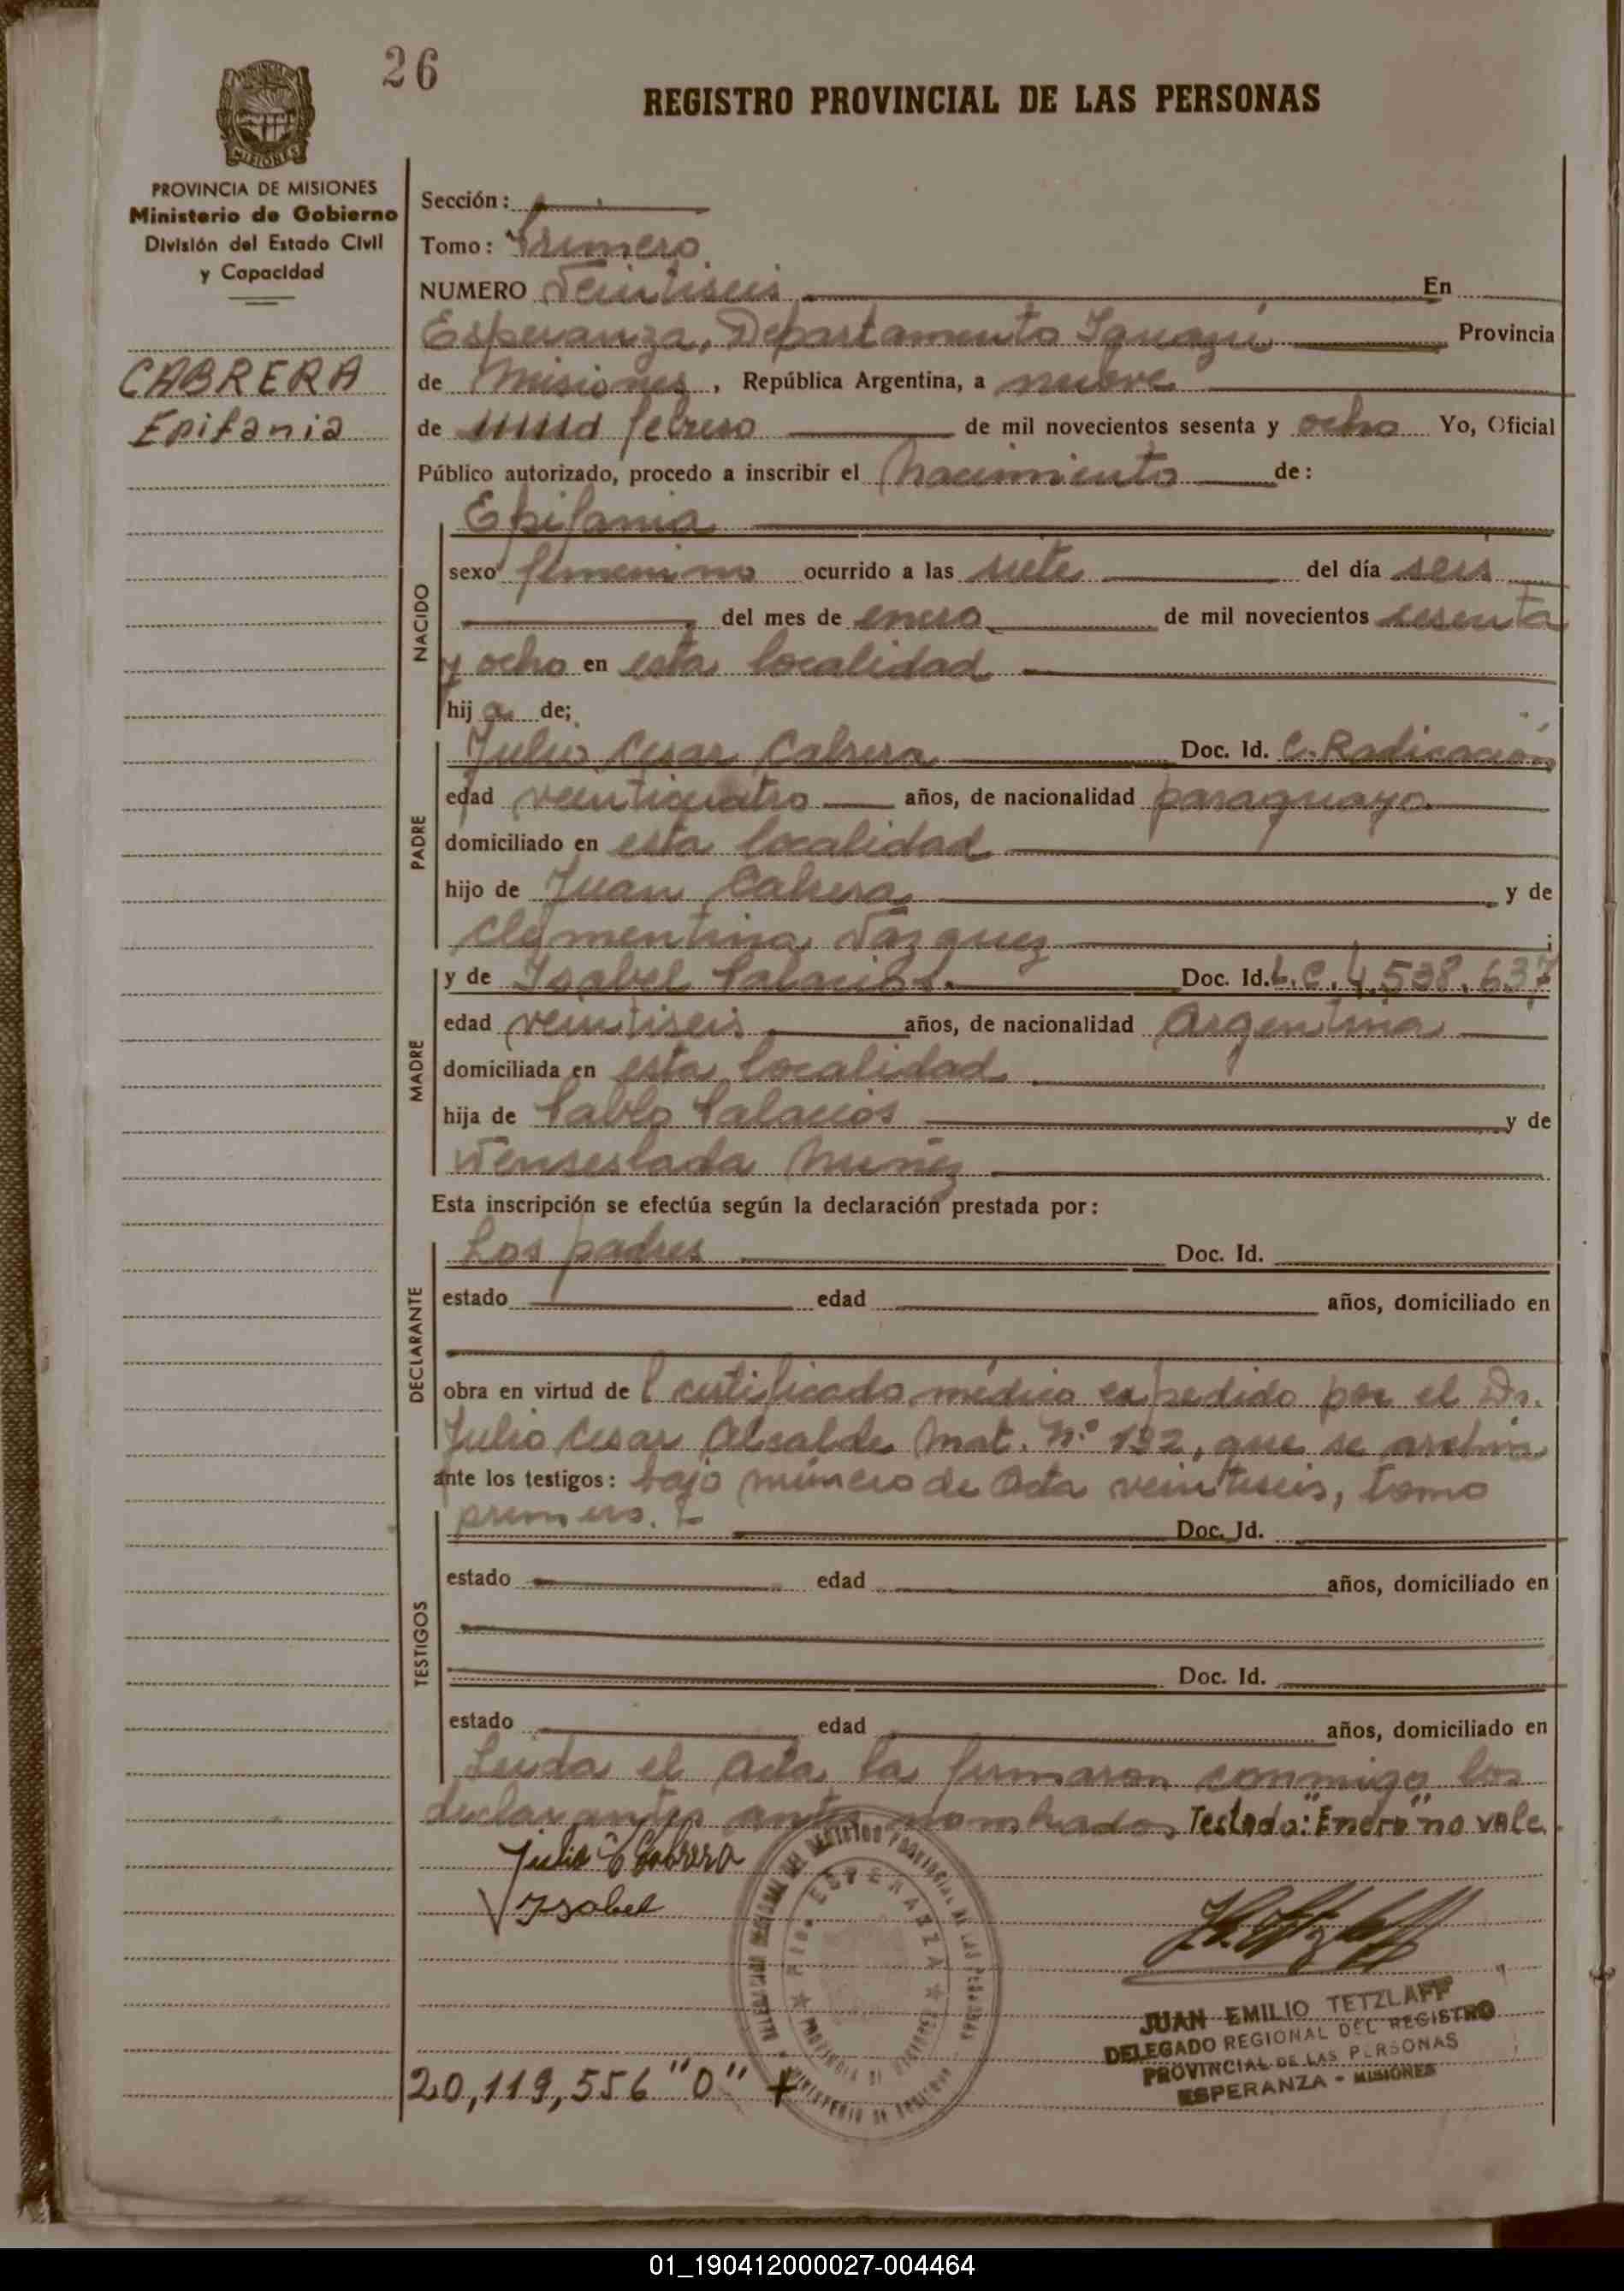 26
REGISTRO PROVINCIAL DE LAS PERSONAS
MISIONES
PROVINCIA DE MISIONES
Ministerio de Gobierno
División del Estado Civil
y Capacidad
CABRERA
Epifania
Sección:
Tomo: Primero
NUMERO Veintiseis En
Esperanza, Departamento Iguazú Provincia
de Misiones, República Argentina, a nueve
de febrero de mil novecientos sesenta y ocho Yo, Oficial
Público autorizado, procedo a inscribir el Nacimiento de:
NACIDO
Epifania
sexo femenino ocurrido a las siete del día seis
del mes de enero de mil novecientos sesenta
y ocho en esta localidad
hija de;
PADRE
Julio Cesar Cabrera Doc. Id. C. Radicación
edad veinticuatro años, de nacionalidad paraguaya
domiciliado en esta localidad
hijo de Juan Cabrera y de
Clementina Vazquez ;
MADRE
y de Isabel Palacios. Doc. Id. L.C. 4.538.637
edad veintiseis años, de nacionalidad Argentina
domiciliada en esta localidad
hija de Pablo Palacios y de
Wenseslada Nuñez
Esta inscripción se efectúa según la declaración prestada por:
DECLARANTE
Los padres Doc. Id.
estado edad años, domiciliado en
obra en virtud de certificado médico expedido por el Dr.
Julio Cesar Alcalde Mat. Nº 192, que se archiva
ante los testigos: bajo número de Acta veintiseis, tomo
primero. Doc. Id.
TESTIGOS
estado edad años, domiciliado en
Doc. Id.
estado edad años, domiciliado en
Leida el Acta la firmaron conmigo los
declarantes antes nombrados Testado: "Enero" no vale.
Julio C Cabrera
Isabel
ESPERANZA
JUAN EMILIO TETZLAFF
DELEGADO REGIONAL DEL REGISTRO
PROVINCIAL DE LAS PERSONAS
ESPERANZA - MISIONES
20,119,556 "0" +
01_190412000027-004464